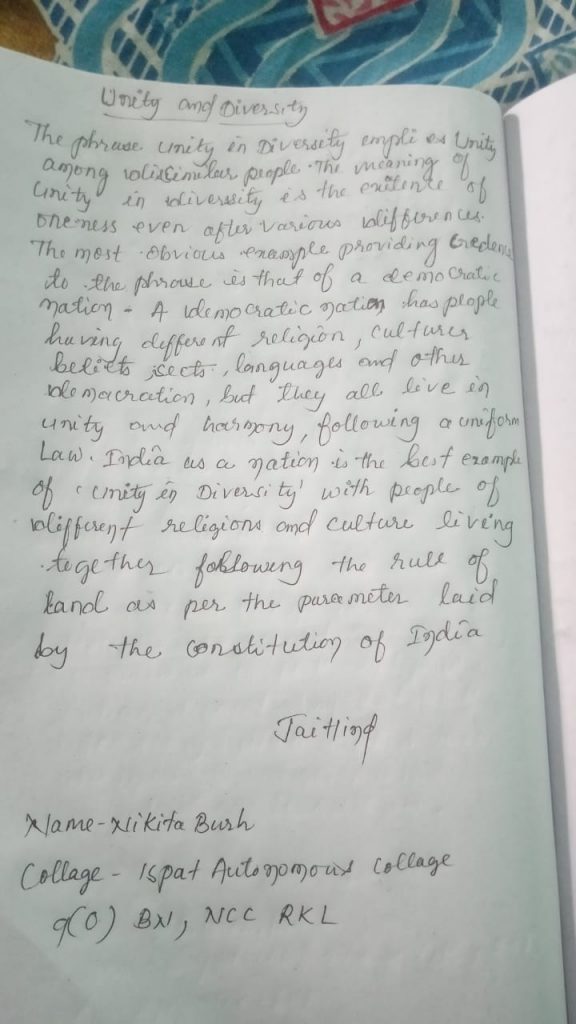 Unity and Diversity
The phrase unity in Diversity emplies Unity
among dissimilar people. The meaning of
Unity in diversity is the existence of
oneness even after various differences.
The most obvious example providing Credence
to the phrase is that of a democratic
nation - A democratic nation has people
having different religion, cultures
beliefs sects, languages and other
demacration, but they all live in
unity and harmony, following a uniform
Law. India as a nation is the best example
of 'unity in Diversity' with people of
different religions and culture living
together following the rule of
land as per the parameter laid
by the constitution of India
Jaithind
Name-Nikita Bush
Collage - Ispat Autonomous Collage
9(O) BN, NCC RKL